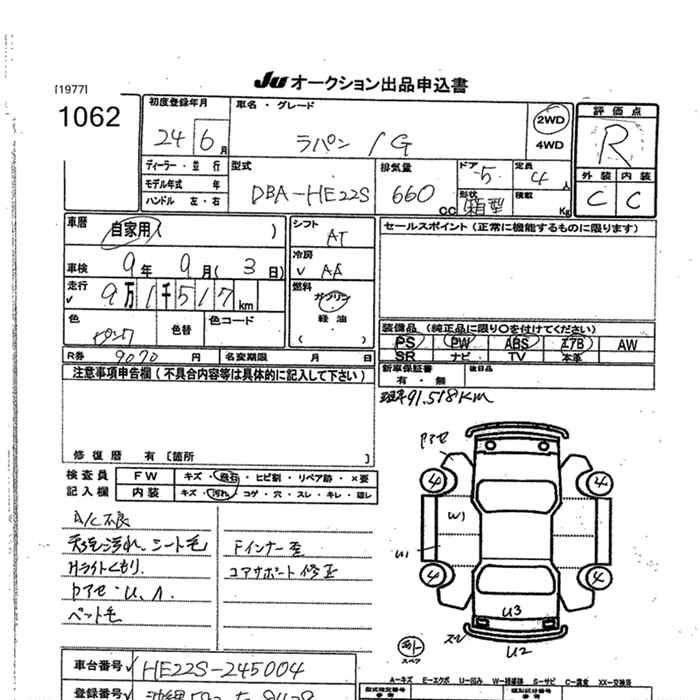 [1977]
Ju オークション出品申込書
1062
初度登録年月
24 6月
車名・グレード
ラパン / G
2WD
4WD
評価点
R
外装 内装
C C
ディーラー・並行
モデル年式 年
ハンドル 左・右
型式
DBA-HE22S
排気量
660 cc
ドア
5
形状
箱型
定員
4人
積載
Kg
車歴
自家用
)
車検
9年 9月( 3日)
走行
9万1千517km
色
ピンク
色替
色コード
シフト
AT
冷房
AA
燃料
ガソリン
軽油
( )
セールスポイント (正常に機能するものに限ります)
装備品 (純正品に限り〇を付けてください)
PS PW ABS エアB AW
SR ナビ TV 本革
R券 9070円 名変期限 月 日
新車保証書
有・無
後日品
注意事項申告欄 (不具合内容等は具体的に記入して下さい)
現車91.518KM
修復歴 有 [箇所
検査員
記入欄
FW キズ・飛石・ヒビ割・リペア跡・×要
内装 キズ・汚れ・コゲ・穴・スレ・キレ・頭レ
A/C不良
天張汚れ、シート毛
Hライトくもり
ペット毛
Fインナー歪
コアサポート修正
アセ
4 4
W1
U1
4 4
U3
U2
スペア
車台番号 HE22S-245004
登録番号
A-キズ E-エクボ U-凹み S-サビ C-腐食 XX-交換済